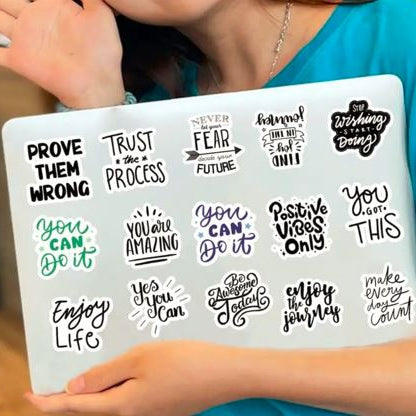 PROVE
THEM
WRONG
TRUST
the
PROCESS
NEVER
let your
FEAR
decide your
FUTURE
FIND
joy
IN THE
journey
STOP
Wishing
START
Doing
You
CAN
Do it
you are
AMAZING
You
CAN
Do it
Positive
Vibes
Only
You
GOT
THIS
Enjoy
LIFE
Yes
You
Can
Be
Awesome
Today
enjoy
the
journey
make
every
day
count